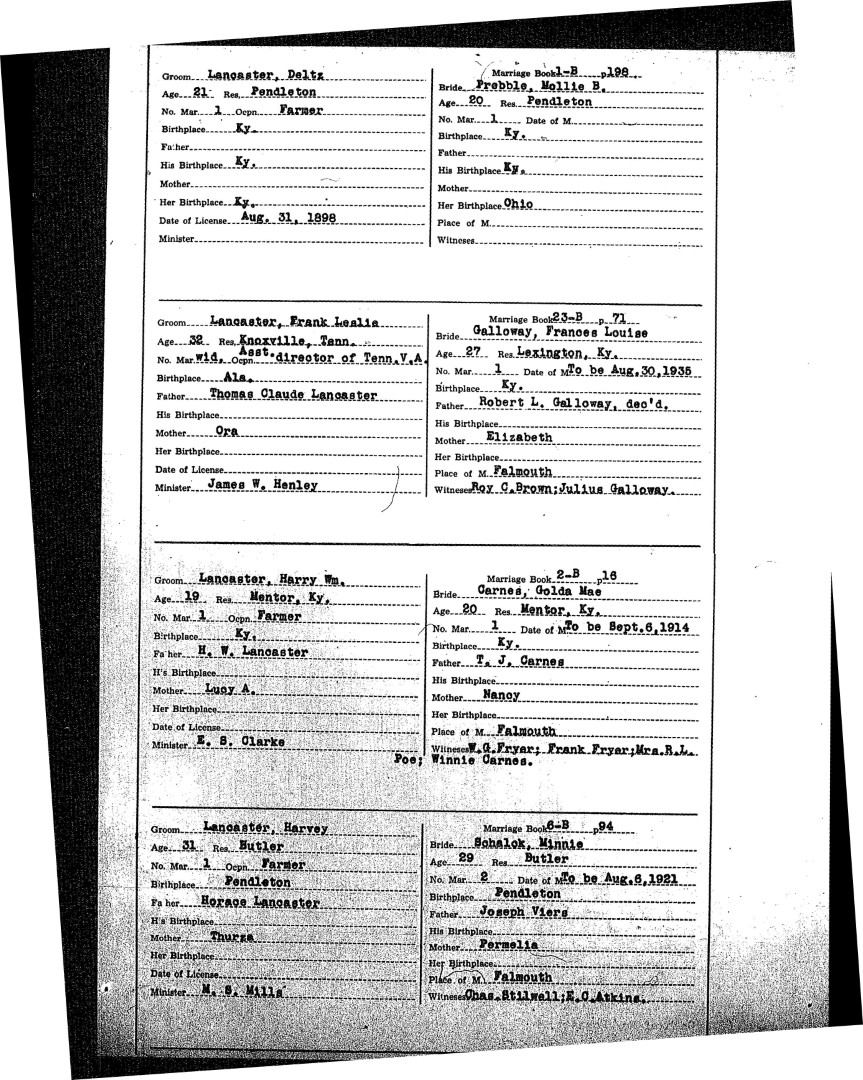 Groom Lancaster, Deltz
Age 21 Res. Pendleton
No. Mar. 1 Ocpn. Farmer
Birthplace Ky.
Father
His Birthplace Ky.
Mother
Her Birthplace Ky.
Date of License Aug. 31, 1898
Minister
Marriage Book 1-B p198
Bride Prebble, Mollie B.
Age 20 Res. Pendleton
No. Mar. 1 Date of M.
Birthplace Ky.
Father
His Birthplace Ky.
Mother
Her Birthplace Ohio
Place of M.
Witneses
Groom Lancaster, Frank Leslie
Age 32 Res. Knoxville, Tenn.
No. Mar. wid. Ocpn. Asst. director of Tenn.V.A.
Birthplace Ala.
Father Thomas Claude Lancaster
His Birthplace
Mother Ora
Her Birthplace
Date of License
Minister James W. Henley
Marriage Book 23-B p 71
Bride Galloway, Frances Louise
Age 27 Res. Lexington, Ky.
No. Mar. 1 Date of M To be Aug.30,1935
Birthplace Ky.
Father Robert L. Galloway, dec'd.
His Birthplace
Mother Elizabeth
Her Birthplace
Place of M. Falmouth
Witneses Roy C.Brown;Julius Galloway.
Groom Lancaster, Harry Wm.
Age 19 Res. Mentor, Ky.
No. Mar. 1 Ocpn. Farmer
Birthplace Ky.
Fa her H. W. Lancaster
H's Birthplace
Mother Lucy A.
Her Birthplace
Date of License
Minister E. S. Clarke
Marriage Book 2-B p16
Bride Carnes, Golda Mae
Age 20 Res. Mentor, Ky.
No. Mar. 1 Date of M To be Sept.6,1914
Birthplace Ky.
Father T. J. Carnes
His Birthplace
Mother Nancy
Her Birthplace
Place of M. Falmouth
Witneses W.G.Fryar; Frank Fryar;Mrs.R.L.
Poe; Winnie Carnes.
Groom Lancaster, Harvey
Age 31 Res. Butler
No. Mar. 1 Ocpn. Farmer
Birthplace Pendleton
Fa her Horace Lancaster
H's Birthplace
Mother Thurza
Her Birthplace
Date of License
Minister M. S. Mills
Marriage Book 6-B p94
Bride Schalok, Minnie
Age 29 Res. Butler
No. Mar. 2 Date of M To be Aug.6,1921
Birthplace Pendleton
Father Joseph Viers
His Birthplace
Mother Permelia
Her Birthplace
Place of M. Falmouth
Witneses Chas.Stilwell;E.C.Atkins.